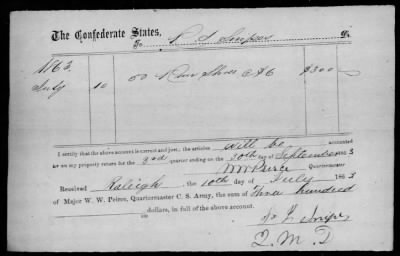 The Confederate States,
To Dr.
1863
July 10 50 Pair Shoes @ $6 $300
I certify that the above account is correct and just; the articles will be accounted
for on my property return for the 3rd quarter ending on the 30th of September 1863
W W Peirce
Quartermaster
Received Raleigh, the 10th day of July 1863
of Major W. W. Peirce, Quartermaster C. S. Army, the sum of Three hundred
dollars, in full of the above account.